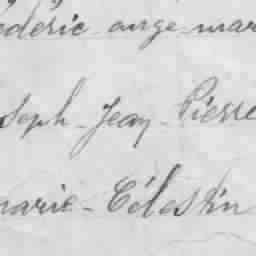 édéric ange mar
seph - Jean - Pierre
marie - Célestin